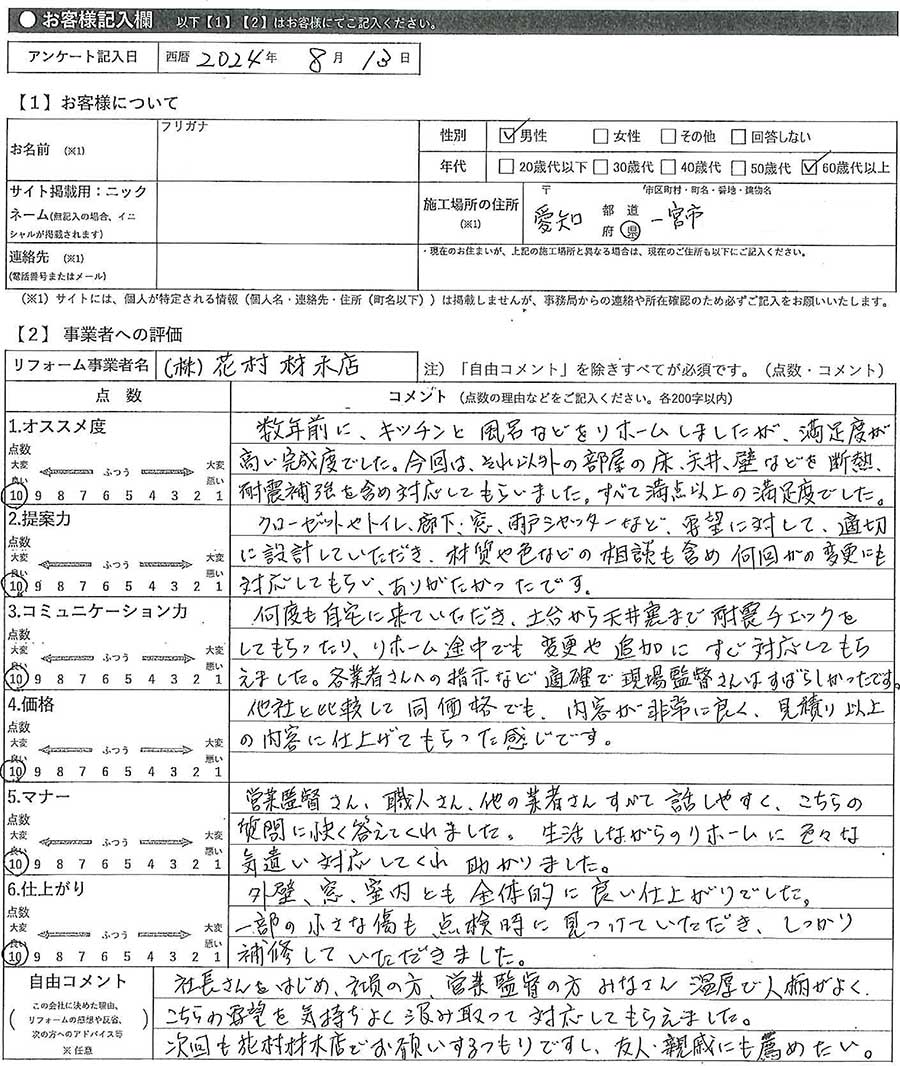 ● お客様記入欄 以下【1】【2】はお客様にてご記入ください。
アンケート記入日 西暦 2024年 8月 13日
【1】お客様について
お名前 (※1)
フリガナ
性別 ☑男性 □女性 □その他 □回答しない
年代 □20歳代以下 □30歳代 □40歳代 □50歳代 ☑60歳代以上
サイト掲載用：ニック
ネーム(無記入の場合、イニ
シャルが掲載されます)
施工場所の住所
(※1)
〒 市区町村・町名・番地・建物名
愛知 都 道 府 県 一宮市
連絡先 (※1)
(電話番号またはメール)
・現在のお住まいが、上記の施工場所と異なる場合は、現在のご住所も以下にご記入ください。
(※1) サイトには、個人が特定される情報（個人名・連絡先・住所（町名以下））は掲載しませんが、事務局からの連絡や所在確認のため必ずご記入をお願いいたします。
【2】事業者への評価
リフォーム事業者名 (株) 花村材木店
注）「自由コメント」を除きすべてが必須です。（点数・コメント）
点 数
コメント (点数の理由などをご記入ください。各200字以内)
1.オススメ度
点数
大変 ふつう 大変
良い 悪い
10 9 8 7 6 5 4 3 2 1
数年前に、キッチンと風呂などをリホームしましたが、満足度が
高い完成度でした。今回は、それ以外の部屋の床、天井、壁などを断熱、
耐震補強を含め対応してもらいました。すべて満点以上の満足度でした。
2.提案力
点数
大変 ふつう 大変
良い 悪い
10 9 8 7 6 5 4 3 2 1
クローゼットやトイレ、廊下、窓、雨戸シャッターなど、要望に対して、適切
に設計していただき、材質や色などの相談も含め何回かの変更にも
対応してもらい、ありがたかったです。
3.コミュニケーション力
点数
大変 ふつう 大変
良い 悪い
10 9 8 7 6 5 4 3 2 1
何度も自宅に来ていただき、土台から天井裏まで耐震チェックを
してもらったり、リホーム途中でも変更や追加にすぐ対応してもら
えました。各業者さんへの指示など適確で現場監督さんはすばらしかったです。
4.価格
点数
大変 ふつう 大変
良い 悪い
10 9 8 7 6 5 4 3 2 1
他社と比較して同価格でも、内容が非常に良く、見積り以上
の内容に仕上げてもらった感じです。
5.マナー
点数
大変 ふつう 大変
良い 悪い
10 9 8 7 6 5 4 3 2 1
営業監督さん、職人さん、他の業者さんすべて話しやすく、こちらの
質問に快く答えてくれました。生活しながらのリホームに色々な
気遣い対応してくれ助かりました。
6.仕上がり
点数
大変 ふつう 大変
良い 悪い
10 9 8 7 6 5 4 3 2 1
外壁、窓、室内とも全体的に良い仕上がりでした。
一部の小さな傷も点検時に見つけていただき、しっかり
補修していただきました。
自由コメント
(この会社に決めた理由、
リフォームの感想や反省、
次の方へのアドバイス等)
※任意
社長さんをはじめ、社員の方、営業監督の方みなさん温厚で人柄がよく、
こちらの要望を気持ちよく汲み取って対応してもらえました。
次回も花村材木店でお願いするつもりですし、友人・親戚にも薦めたい。